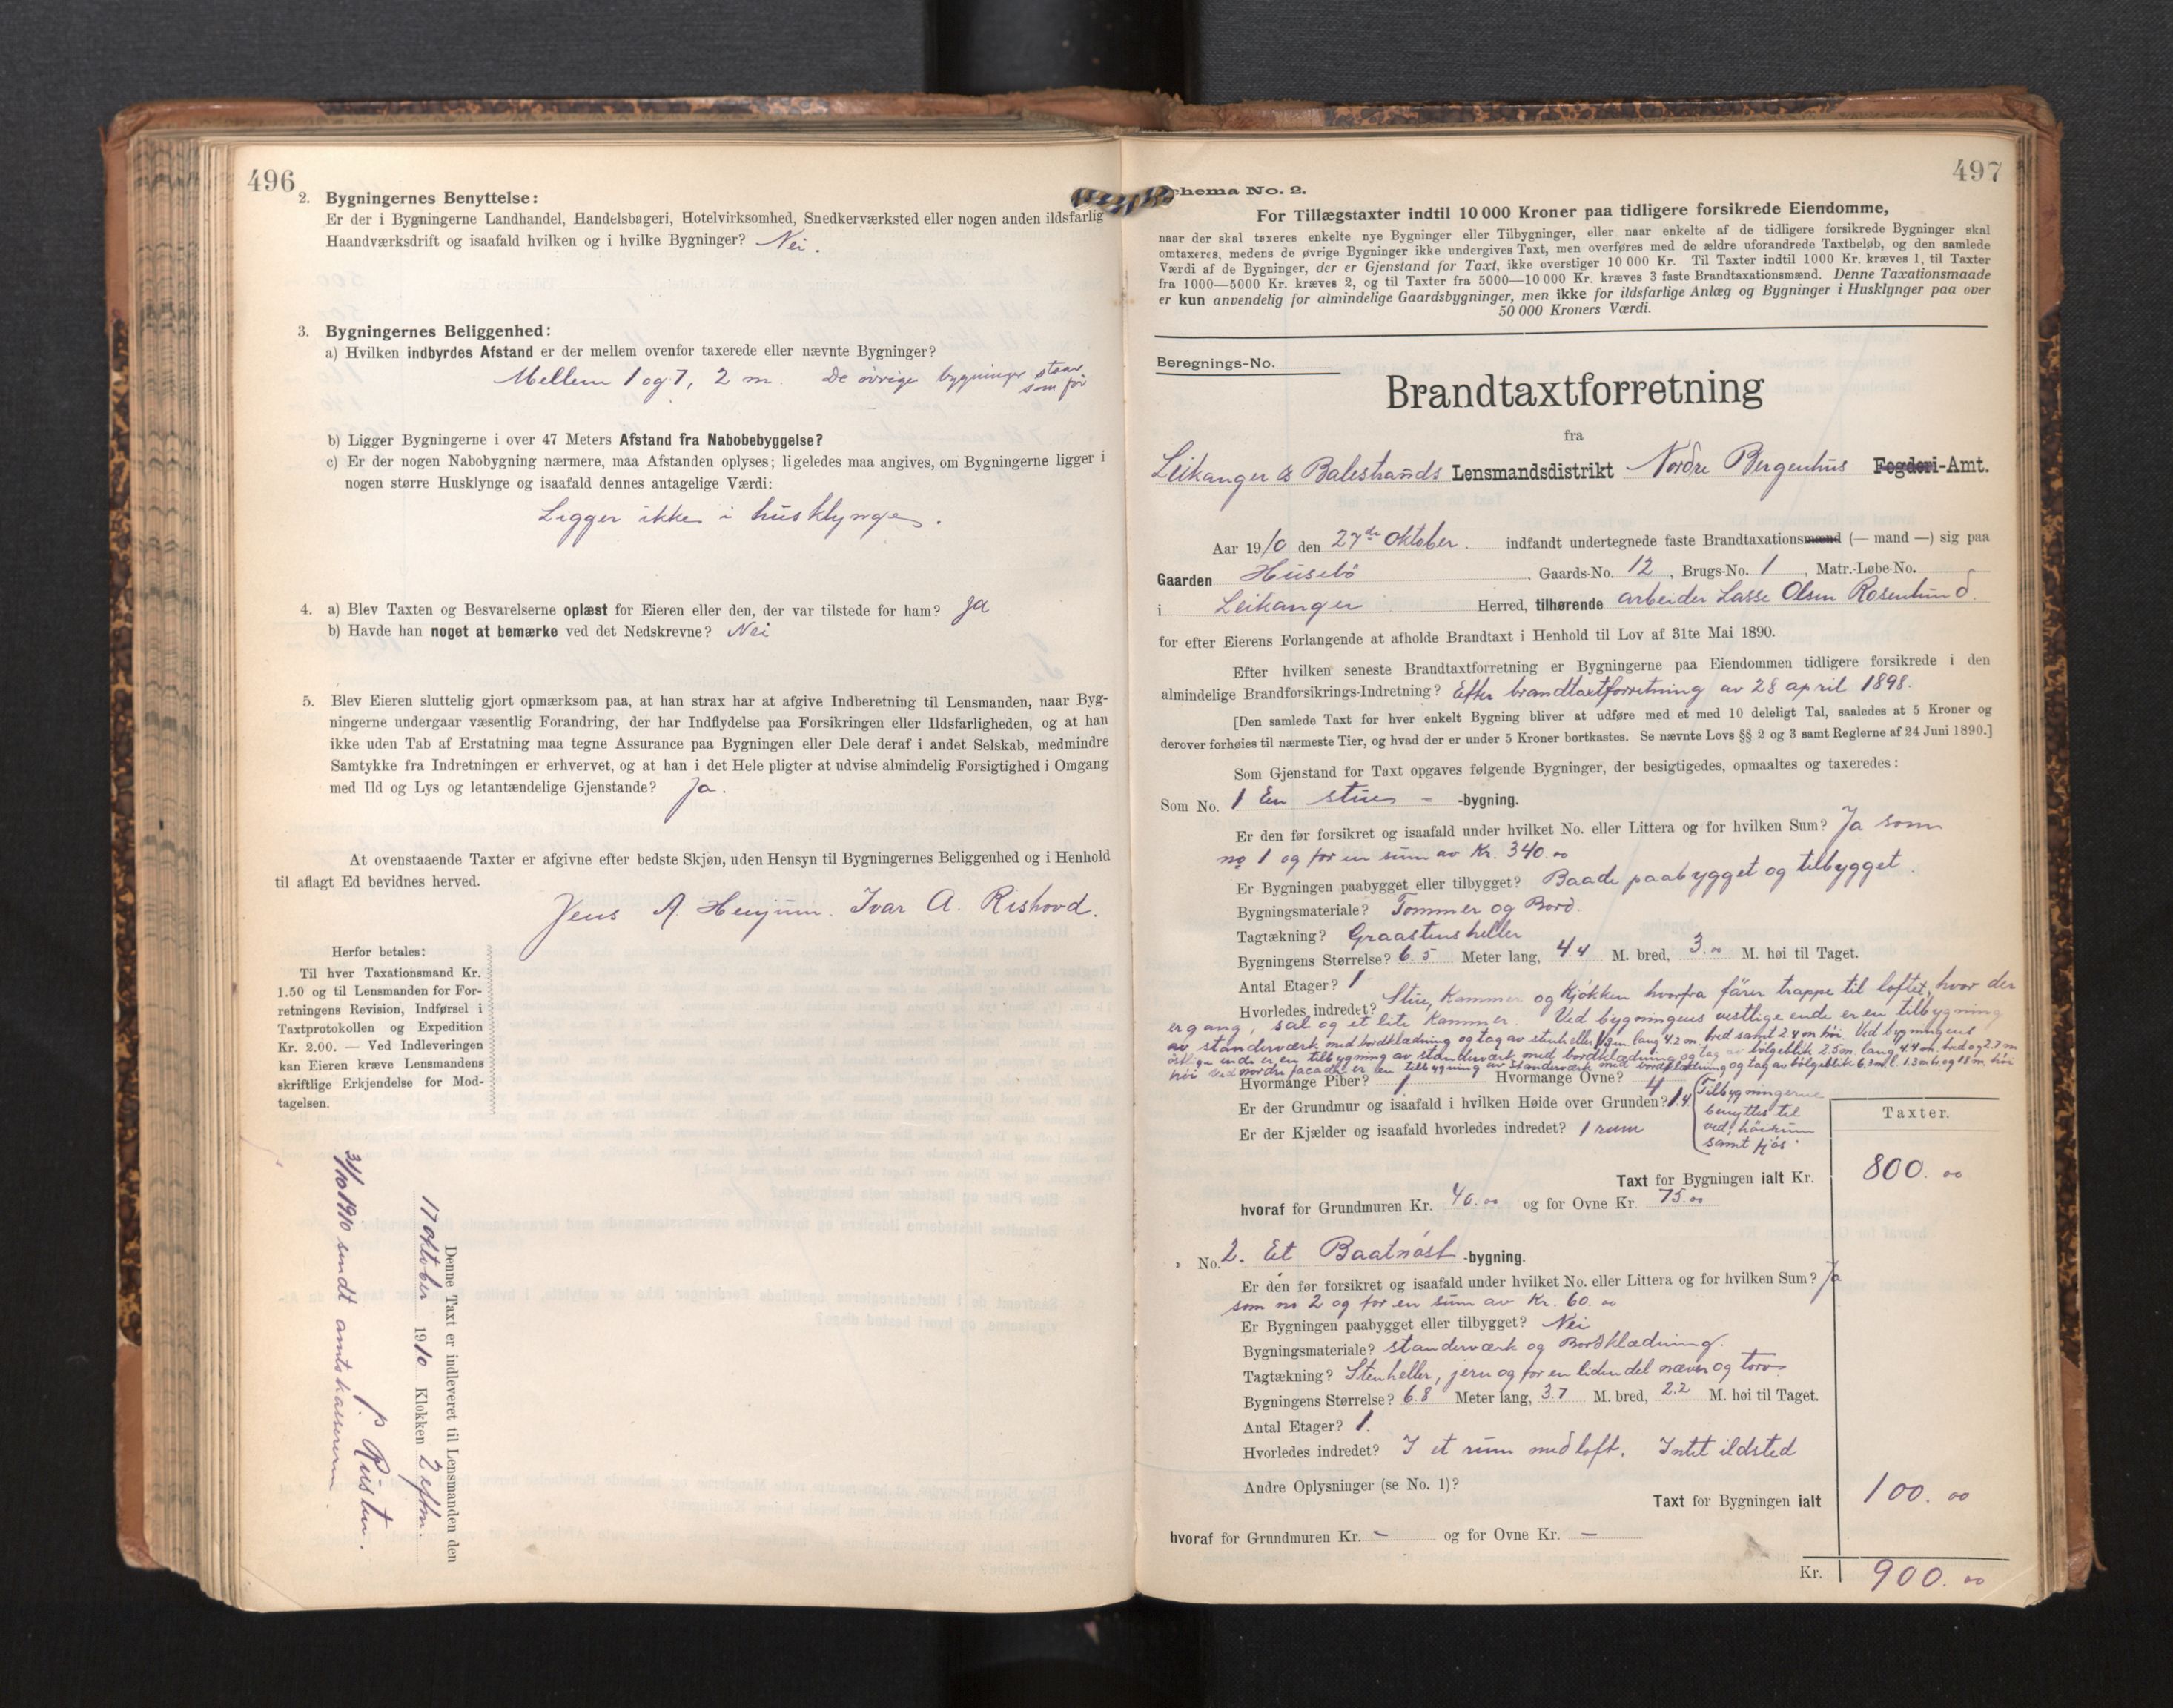 496
2. Bygningernes Benyttelse:
Er der i Bygningerne Landhandel, Handelsbageri, Hotelvirksomhed, Snedkerværksted eller nogen anden ildsfarlig
Haandværksdrift og isaafald hvilken og i hvilke Bygninger? Nei.
3. Bygningernes Beliggenhed:
a) Hvilken indbyrdes Afstand er der mellem ovenfor taxerede eller nævnte Bygninger?
Mellem 1 og 7, 2 m. De øvrige bygninger staar
som før
b) Ligger Bygningerne i over 47 Meters Afstand fra Nabobebyggelse?
c) Er der nogen Nabobygning nærmere, maa Afstanden oplyses; ligeledes maa angives, om Bygningerne ligger i
nogen større Husklynge og isaafald dennes antagelige Værdi:
Ligger ikke i husklynge.
4. a) Blev Taxten og Besvarelserne oplæst for Eieren eller den, der var tilstede for ham? Ja
b) Havde han noget at bemærke ved det Nedskrevne? Nei
5. Blev Eieren sluttelig gjort opmærksom paa, at han strax har at afgive Indberetning til Lensmanden, naar Byg-
ningerne undergaar væsentlig Forandring, der har Indflydelse paa Forsikringen eller Ildsfarligheden, og at han
ikke uden Tab af Erstatning maa tegne Assurance paa Bygningen eller Dele deraf i andet Selskab, medmindre
Samtykke fra Indretningen er erhvervet, og at han i det Hele pligter at udvise almindelig Forsigtighed i Omgang
med Ild og Lys og letantændelige Gjenstande? Ja.
At ovenstaaende Taxter er afgivne efter bedste Skjøn, uden Hensyn til Bygningernes Beliggenhed og i Henhold
til aflagt Ed bevidnes herved.
Jens A. Henjum. Ivar A. Rishovd.
Herfor betales:
Til hver Taxationsmand Kr.
1.50 og til Lensmanden for For-
retningens Revision, Indførsel i
Taxtprotokollen og Expedition
Kr. 2.00. — Ved Indleveringen
kan Eieren kræve Lensmandens
skriftlige Erkjendelse for Mod-
tagelsen.
Denne Taxt er indleveret til Lensmanden den
17 oktober 1910 Klokken 2 eftm.
31/10 1910 sendt amtskassereren.
497
Schema No. 2.
For Tillægstaxter indtil 10 000 Kroner paa tidligere forsikrede Eiendomme,
naar der skal taxeres enkelte nye Bygninger eller Tilbygninger, eller naar enkelte af de tidligere forsikrede Bygninger skal
omtaxeres, medens de øvrige Bygninger ikke undergives Taxt, men overføres med de ældre uforandrede Taxtbeløb, og den samlede
Værdi af de Bygninger, der er Gjenstand for Taxt, ikke overstiger 10 000 Kr. Til Taxter indtil 1000 Kr. kræves 1, til Taxter
fra 1000—5000 Kr. kræves 2, og til Taxter fra 5000—10 000 Kr. kræves 3 faste Brandtaxationsmænd. Denne Taxationsmaade
er kun anvendelig for almindelige Gaardsbygninger, men ikke for ildsfarlige Anlæg og Bygninger i Husklynger paa over
50 000 Kroners Værdi.
Beregnings-No.
Brandtaxtforretning
fra
Leikanger & Balestrands Lensmandsdistrikt Nordre Bergenhus Fogderi-Amt.
Aar 1910 den 27de oktober. indfandt undertegnede faste Brandtaxationsmænd (— mand —) sig paa
Gaarden Husebø, Gaards-No. 12, Brugs-No. 1, Matr.-Løbe-No.
i Leikanger Herred, tilhørende arbeider Lasse Olsen Rosenlund.
for efter Eierens Forlangende at afholde Brandtaxt i Henhold til Lov af 31te Mai 1890.
Efter hvilken seneste Brandtaxtforretning er Bygningerne paa Eiendommen tidligere forsikrede i den
almindelige Brandforsikrings-Indretning? Efter brandtaxtforretning av 28 april 1898.
[Den samlede Taxt for hver enkelt Bygning bliver at udføre med et med 10 deleligt Tal, saaledes at 5 Kroner og
derover forhøies til nærmeste Tier, og hvad der er under 5 Kroner bortkastes. Se nævnte Lovs §§ 2 og 3 samt Reglerne af 24 Juni 1890.]
Som Gjenstand for Taxt opgaves følgende Bygninger, der besigtigedes, opmaaltes og taxeredes:
Som No. 1 En stue - -bygning.
Er den før forsikret og isaafald under hvilket No. eller Littera og for hvilken Sum? Ja som
no 1 og for en sum av Kr. 340.00
Er Bygningen paabygget eller tilbygget? Baade paabygget og tilbygget.
Bygningsmateriale? Tømmer og Bord.
Tagtækning? Graastensheller
Bygningens Størrelse? 6.5 Meter lang, 4.4 M. bred, 3.00 M. høi til Taget.
Antal Etager? 1
Hvorledes indredet? Stue, Kammer og Kjøkken hvorfra fører trappe til loftet, hvor der
er gang, sal og et lite kammer. Ved bygningens vestlige ende er en tilbygning
av standerværk med bordklædning og tag av stenheller 1.9 m lang 4.2 m. bred samt 2.4 m høi. Ved bygningens
østlige ende er en tilbygning av standerværk med bordklædning og tag av bølgeblik 2.5 m. lang, 4.4 m. bred og 2.7 m
høi. Ved nordre facade er en tilbygning av standerværk med bordklædning og tag av bølgeblik 6.3 m l. 1.3 m b. og 1.8 m. høi
Hvormange Piber? 1 Hvormange Ovne? 4
Er der Grundmur og isaafald i hvilken Høide over Grunden? 1.4
Er der Kjælder og isaafald hvorledes indredet? 1 rum
Tilbygningerne
benyttes til
ved, høirum
samt fjøs.
Taxter.
Taxt for Bygningen ialt Kr. 800.00
hvoraf for Grundmuren Kr. 40.00 og for Ovne Kr. 75.00
" No. 2. Et Baatnøst -bygning.
Er den før forsikret og isaafald under hvilket No. eller Littera og for hvilken Sum? Ja
som no 2 og for en sum av Kr. 60.00
Er Bygningen paabygget eller tilbygget? Nei
Bygningsmateriale? standerværk og Bordklædning.
Tagtækning? Stenheller, jern og for en liden del næver og torv
Bygningens Størrelse? 6.8 Meter lang, 3.7 M. bred, 2.2 M. høi til Taget.
Antal Etager? 1.
Hvorledes indredet? I et rum med loft. Intet ildsted
Andre Oplysninger (se No. 1)?
Taxt for Bygningen ialt 100.00
hvoraf for Grundmuren Kr. - og for Ovne Kr. —
Kr. 900.00